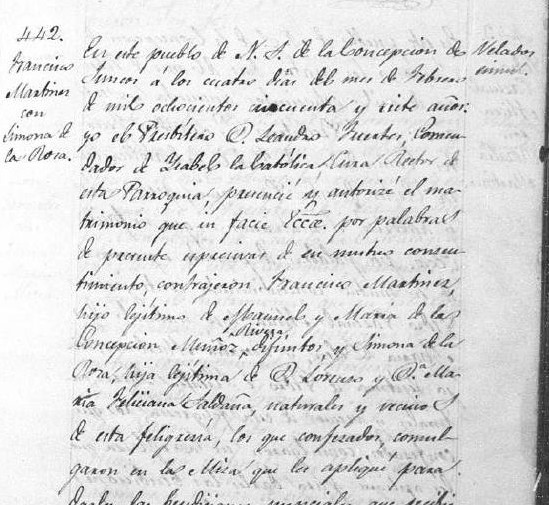 442.
Francisco
Martinez
con
Simona de
la Rosa.
En este pueblo de N. S. de la Concepcion de
Juncos á los cuatro dias del mes de Febrero
de mil ochocientos cincuenta y siete años:
yo el Presbítero D. Leandro Fuertes, Comen-
dador de Ysabel la Católica, Cura Rector de
esta Parroquia, presencié y autorizé el ma-
trimonio que in facie Eccæ. por palabras
de presente espresivas de su mutuo consen-
timiento, contrajeron Francisco Martinez,
hijo lejítimo de Manuel y Maria de la
Rivera
Concepcion Muñoz, difuntos, y Simona de la
Rosa, hija lejítima de D. Lorenzo y Dª. Ma-
ria Feliciana Saldaña, naturales y vecinos
de esta feligresía, los que confesados, comul-
garon en la Misa que les apliqué para
darles las bendiciones nupciales que
Velados